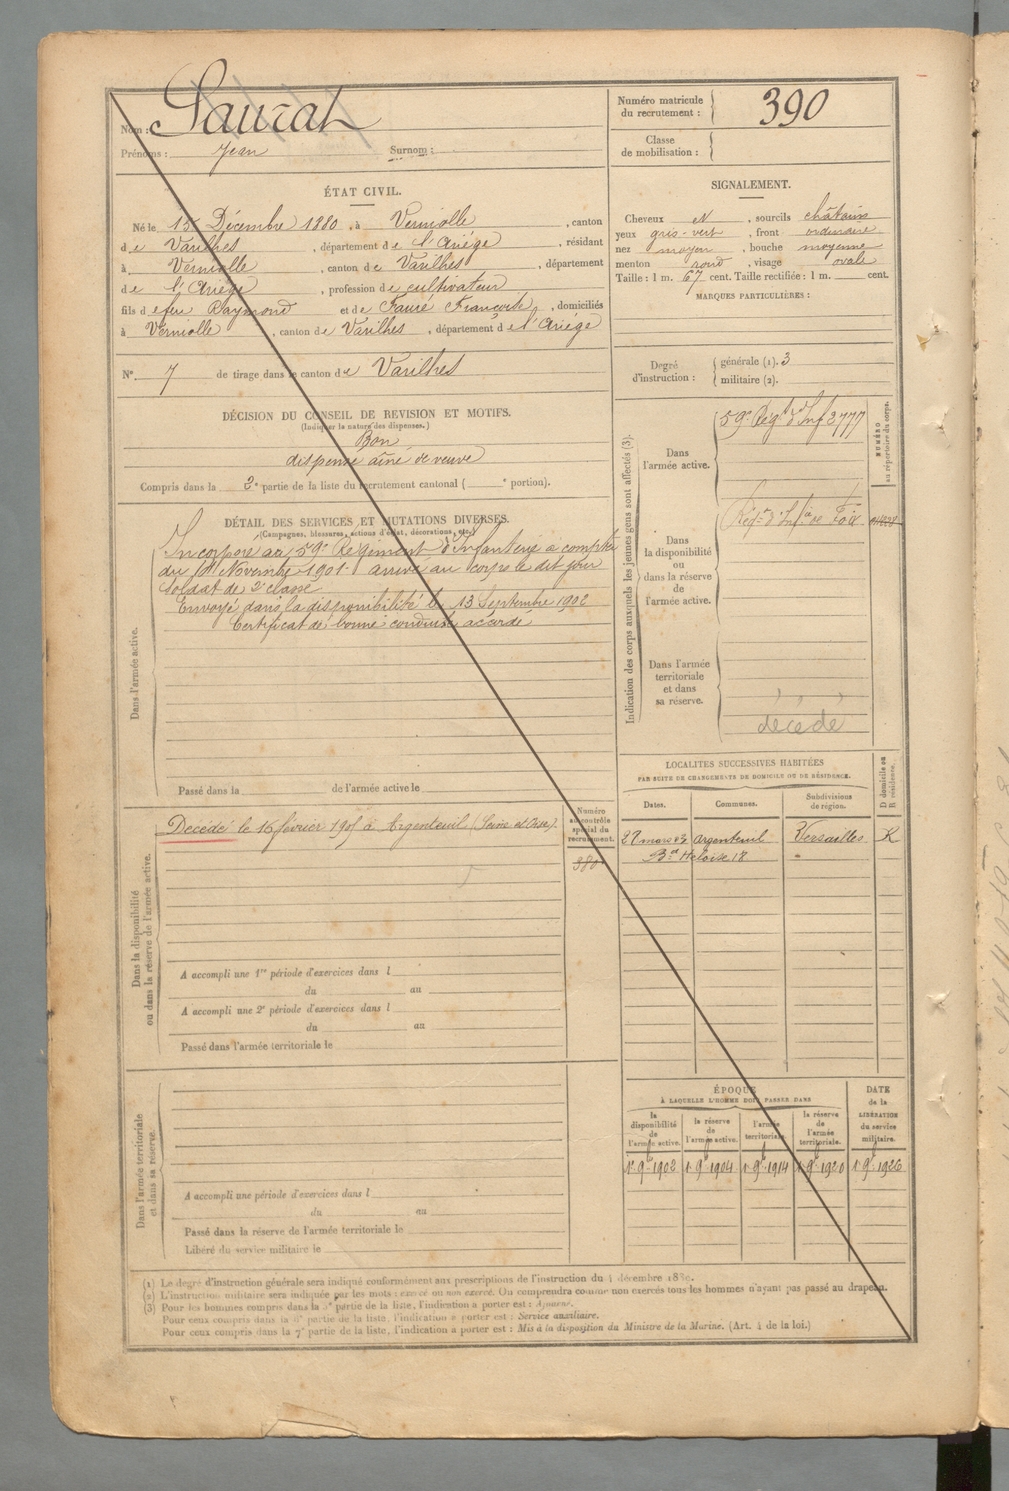 Nom : Saurat
Prénoms : Jean Surnom :
Numéro matricule du recrutement : 390
Classe de mobilisation :
ÉTAT CIVIL.
Né le 15 Décembre 1880, à Verniolle, canton
de Varilhes, département de l'Ariège, résidant
à Verniolle, canton de Varilhes, département
de l'Ariège, profession de cultivateur
fils de feu Raymond et de Fauré Françoise, domiciliés
à Verniolle, canton de Varilhes, département de l'Ariège
N° 7 de tirage dans le canton de Varilhes
DÉCISION DU CONSEIL DE REVISION ET MOTIFS.
(Indiquer la nature des dispenses.)
Bon
dispensé aîné de veuve
Compris dans la 2e partie de la liste du recrutement cantonal ( e portion).
SIGNALEMENT.
Cheveux N, sourcils châtains
yeux gris-vert, front ordinaire
nez moyen, bouche moyenne
menton rond, visage ovale
Taille : 1 m. 67 cent. Taille rectifiée : 1 m. cent.
MARQUES PARTICULIÈRES :
Degré d'instruction : générale (1). 3
militaire (2).
DÉTAIL DES SERVICES ET MUTATIONS DIVERSES.
(Campagnes, blessures, actions d'éclat, décorations, etc.)
Dans l'armée active.
Incorporé au 59e Régiment d'Infanterie à compter
du Novembre 1901. arrivé au corps le dit jour
soldat de 2e classe
Envoyé dans la disponibilité le 13 Septembre 1902
Certificat de bonne conduite accordé
Passé dans la de l'armée active le
Indication des corps auxquels les jeunes gens sont affectés (3).
NUMÉRO au répertoire du corps.
Dans l'armée active.
59e Régt d'Inf 2777
Dans la disponibilité ou dans la réserve de l'armée active.
Régt d'Infie de Foix
Dans l'armée territoriale et dans sa réserve.
décédé
Dans la disponibilité ou dans la réserve de l'armée active.
Numéro au contrôle spécial du recrutement.
Décédé le 15 février 1905 à Argenteuil (Seine et Oise).
A accompli une 1re période d'exercices dans l
du au
A accompli une 2e période d'exercices dans l
du au
Passé dans l'armée territoriale le
LOCALITÉS SUCCESSIVES HABITÉES
PAR SUITE DE CHANGEMENTS DE DOMICILE OU DE RÉSIDENCE.
Dates. Communes. Subdivisions de région. D domicile ou R résidence.
27 mars 03 Argenteuil Versailles R
Bd Héloïse 18 "
ÉPOQUE
À LAQUELLE L'HOMME DOIT PASSER DANS
la disponibilité de l'armée active. la réserve de l'armée active. l'armée territoriale. la réserve de l'armée territoriale. DATE de la LIBÉRATION du service militaire.
1r 9b 1902 1r 9b 1904 1r 9b 1914 1r 9b 1920 1r 9b 1926
Dans l'armée territoriale et dans sa réserve.
A accompli une période d'exercices dans l
du au
Passé dans la réserve de l'armée territoriale le
Libéré du service militaire le
(1) Le degré d'instruction générale sera indiqué conformément aux prescriptions de l'instruction du 4 décembre 1889.
(2) L'instruction militaire sera indiquée par les mots : exercé ou non exercé. On comprendra comme non exercés tous les hommes n'ayant pas passé au drapeau.
(3) Pour les hommes compris dans la 5e partie de la liste, l'indication à porter est : Ajourné.
Pour ceux compris dans la 6e partie de la liste, l'indication à porter est : Service auxiliaire.
Pour ceux compris dans la 7e partie de la liste, l'indication à porter est : Mis à la disposition du Ministre de la Marine. (Art. 4 de la loi.)